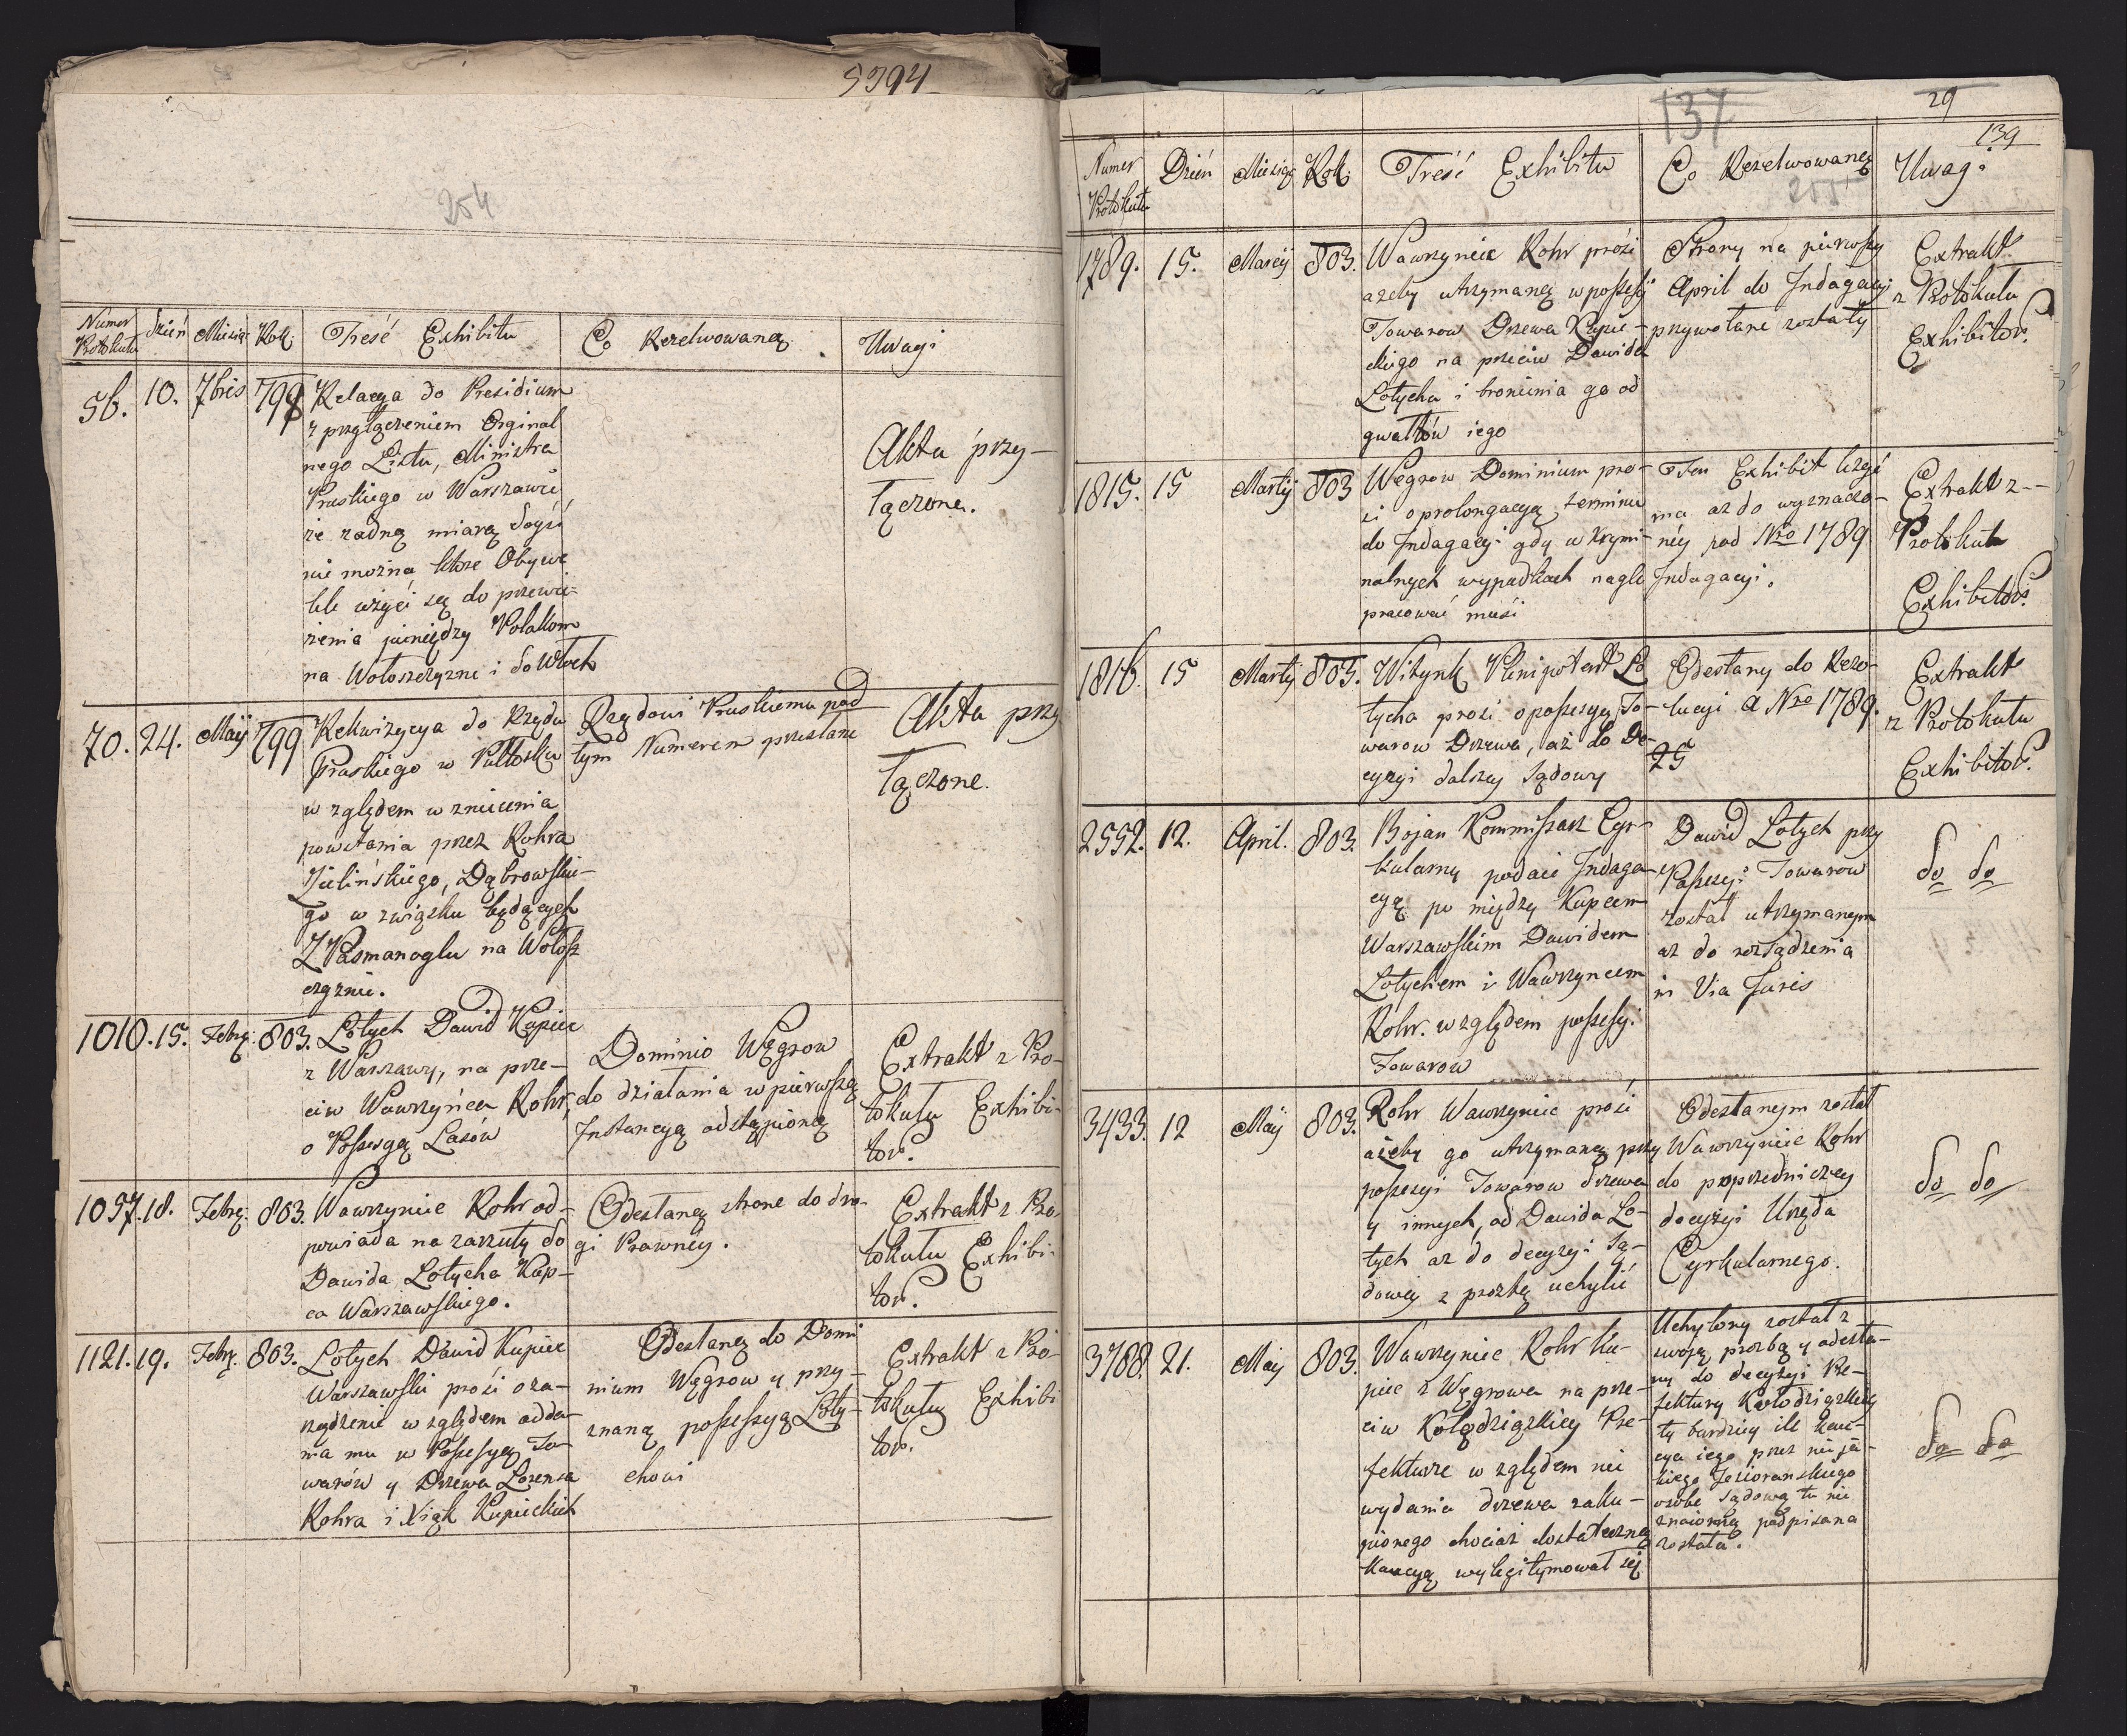 5394
254
Numer Protokułu
Dzień
Miesiąc
Rok
Treść Exhibitu
Co Rezelwowaną
Uwagi
56. 10. 7bris 799
Relacya do Presidium
z przyłączeniem Orginal
nego Listu, Ministra
Pruskiego w Warszawie
że żadną miarą dojść
nie można które Obywa
tele użyci są do przewie-
zienia pieniędzy Polakom
na Wołoszczyznę i do Włoch
Akta przy-
łączone.
70. 24. Maij 799
Rekwizycya do Rządu
Pruskiego w Pułtosku
w zględem w zniecenia
powstania przez Rohra
Zielińskiego, Dąbrowskie-
go w związku będących
Z Pasmanoglu na Wołosz
czyznie.
Rządowi Pruskiemu pod
tym Numerem przesłane
Akta przy
łączone.
1010. 15. Febrę. 803.
Lotych Dawid Kupiec
z Warszawy, na prze-
ciw Wawrzyńca Rohr,
o Possesyą Lasów
Dominio Węgrow
do działania w pierwszą
Instancyą odstąpioną
Extrakt z Pro-
tokułu Exhibi-
tor.
1057. 18. Febrę. 803.
Wawrzyniec Rohr od-
powiada na zarzuty do
Dawida Lotycha Kup-
ca Warszawskiego.
Odesłaną strone do dro-
gi Prawnéy.
Extrakt z Pro-
tokułu Exhibi-
tor.
1121. 19. Febrę. 803.
Lotych Dawid Kupiec
Warszawski prosi o za-
rządzenie w zględem odda-
nia mu w Possesyą To-
warów y Drzewa Lorenza
Rohra i Xiąk Kupieckich
Odesłaną do Domi
nium Węgrow y przy-
znaną possessyą Loty-
chowi
Extrakt z Pro-
tokułu Exhibi
tor.
137
29
139
255
Numer Protokułu
Dzień
Miesiąc
Rok
Treść Exhibitu
Co Rezelwowaną
Uwagi
1789. 15. Marcij 803.
Wawrzyniec Rohr prosi
azeby utrzymaną w possesyi
Towarow Drzewa Kupie-
ckiego na przeciw Dawida
Lotycha i bronienia go od
gwałtów iego
Strony na pierwszy
April do Indagacyi
przywołane zostały
Extrakt
z Protokułu
Exhibitor.
1815. 15 Martij 803
Węgrow Dominium pro-
si o prolongacyą terminu
do Indagacyi gdy w krymi-
nalnych wypadkach nagle
pracować musi
Ten Exhibit leżyć
ma az do wyznaczo-
néy pod Nro 1789
Indagacyi.
Extrakt z
Protokułu
Exhibitor.
1816. 15 Martij 803.
Witynk Plenipotent Lo
tycha prosi o possesyą To-
warow Drzewa, aż do De-
cyzyi dalszey Sądowy
Odesłany do Rezo-
lucyi a Nro 1789.
25
Extrakt
z Protokułu
Exhibitor.
2552. 12. April. 803.
Bojan Kommissarz Cyr-
kularny podaie Indaga-
cyą po między Kupcem
Warszawskim Dawidem
Lotychem i Wawrzyncem
Rohr. względem possesyi
Towarow
Dawid Lotych przy
Possesyi Towarow
został utrzymanym
az do rozsądzenia
in Via Juris
do do
3433. 12 Maij 803.
Rohr Wawrzyniec prosi
ażeby go utrzymaną przy
possesyi Towarow drzewa
y innych, od Dawida Lo-
tych az do decyzyi Są-
dowéy z prozbą uchylić
Odesłanym został
Wawrzyniec Rohr
do poprzedniczey
decyzyi Urzędu
Cyrkularnego.
do do
3788. 21. Maij 803.
Wawrzyniec Rohr Ku-
piec z Węgrowa na prze-
ciw Kołodziązkiey Pre-
fekturze w zględem nie
wydania drzewa zaku-
pionego chociaż dostateczną
kaucyą wylegitymował się
Uchylony został z
swoją prozbą y odesła-
ny do decyzyi Pre-
fektury Kołodziązkiey
ty bardziey ile kau-
cya iego przez nie ja-
kiego Jezioranskiego
osobe sądową tu nie
znaiomą podpisana
została.
do do